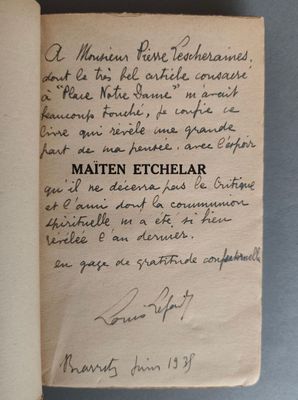 A Monsieur Pierre Lescheraines,
dont le très bel article consacré
à "Place Notre Dame" m'avait
beaucoup touché, je confie ce
livre qui révèle une grande
part de ma pensée. avec l'espoir
MAÏTEN ETCHELAR
qu'il ne décevra pas le Critique
et l'ami dont la communion
spirituelle m'a été si bien
révélée l'an dernier.
en gage de gratitude confraternelle
Louis
Biarritz Juin 1938